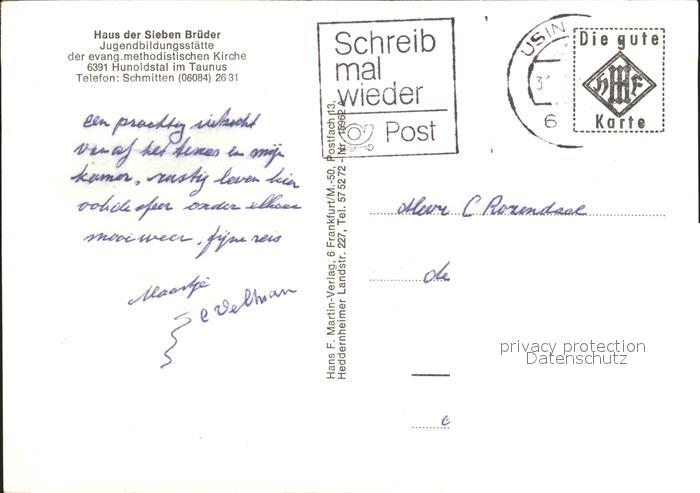 Haus der Sieben Brüder
Jugendbildungsstätte
der evang.methodistischen Kirche
6391 Hunoldstal im Taunus
Telefon: Schmitten (06084) 26 31
een prachtig uitzicht
vanaf het terras en mijn
kamer, rustig leven hier
volide sfeer onder elkaar
mooi weer, fijne reis
Maartje
Veltman
Hans F. Martin-Verlag, 6 Frankfurt/M.-50, Postfach 13,
Heddernheimer Landstr. 227, Tel. 57 52 72 - Nr.
Schreib
mal
wieder
Post
USIN
6
Die gute
H F
Karte
C Rozendaal
de
e
privacy protection
Datenschutz